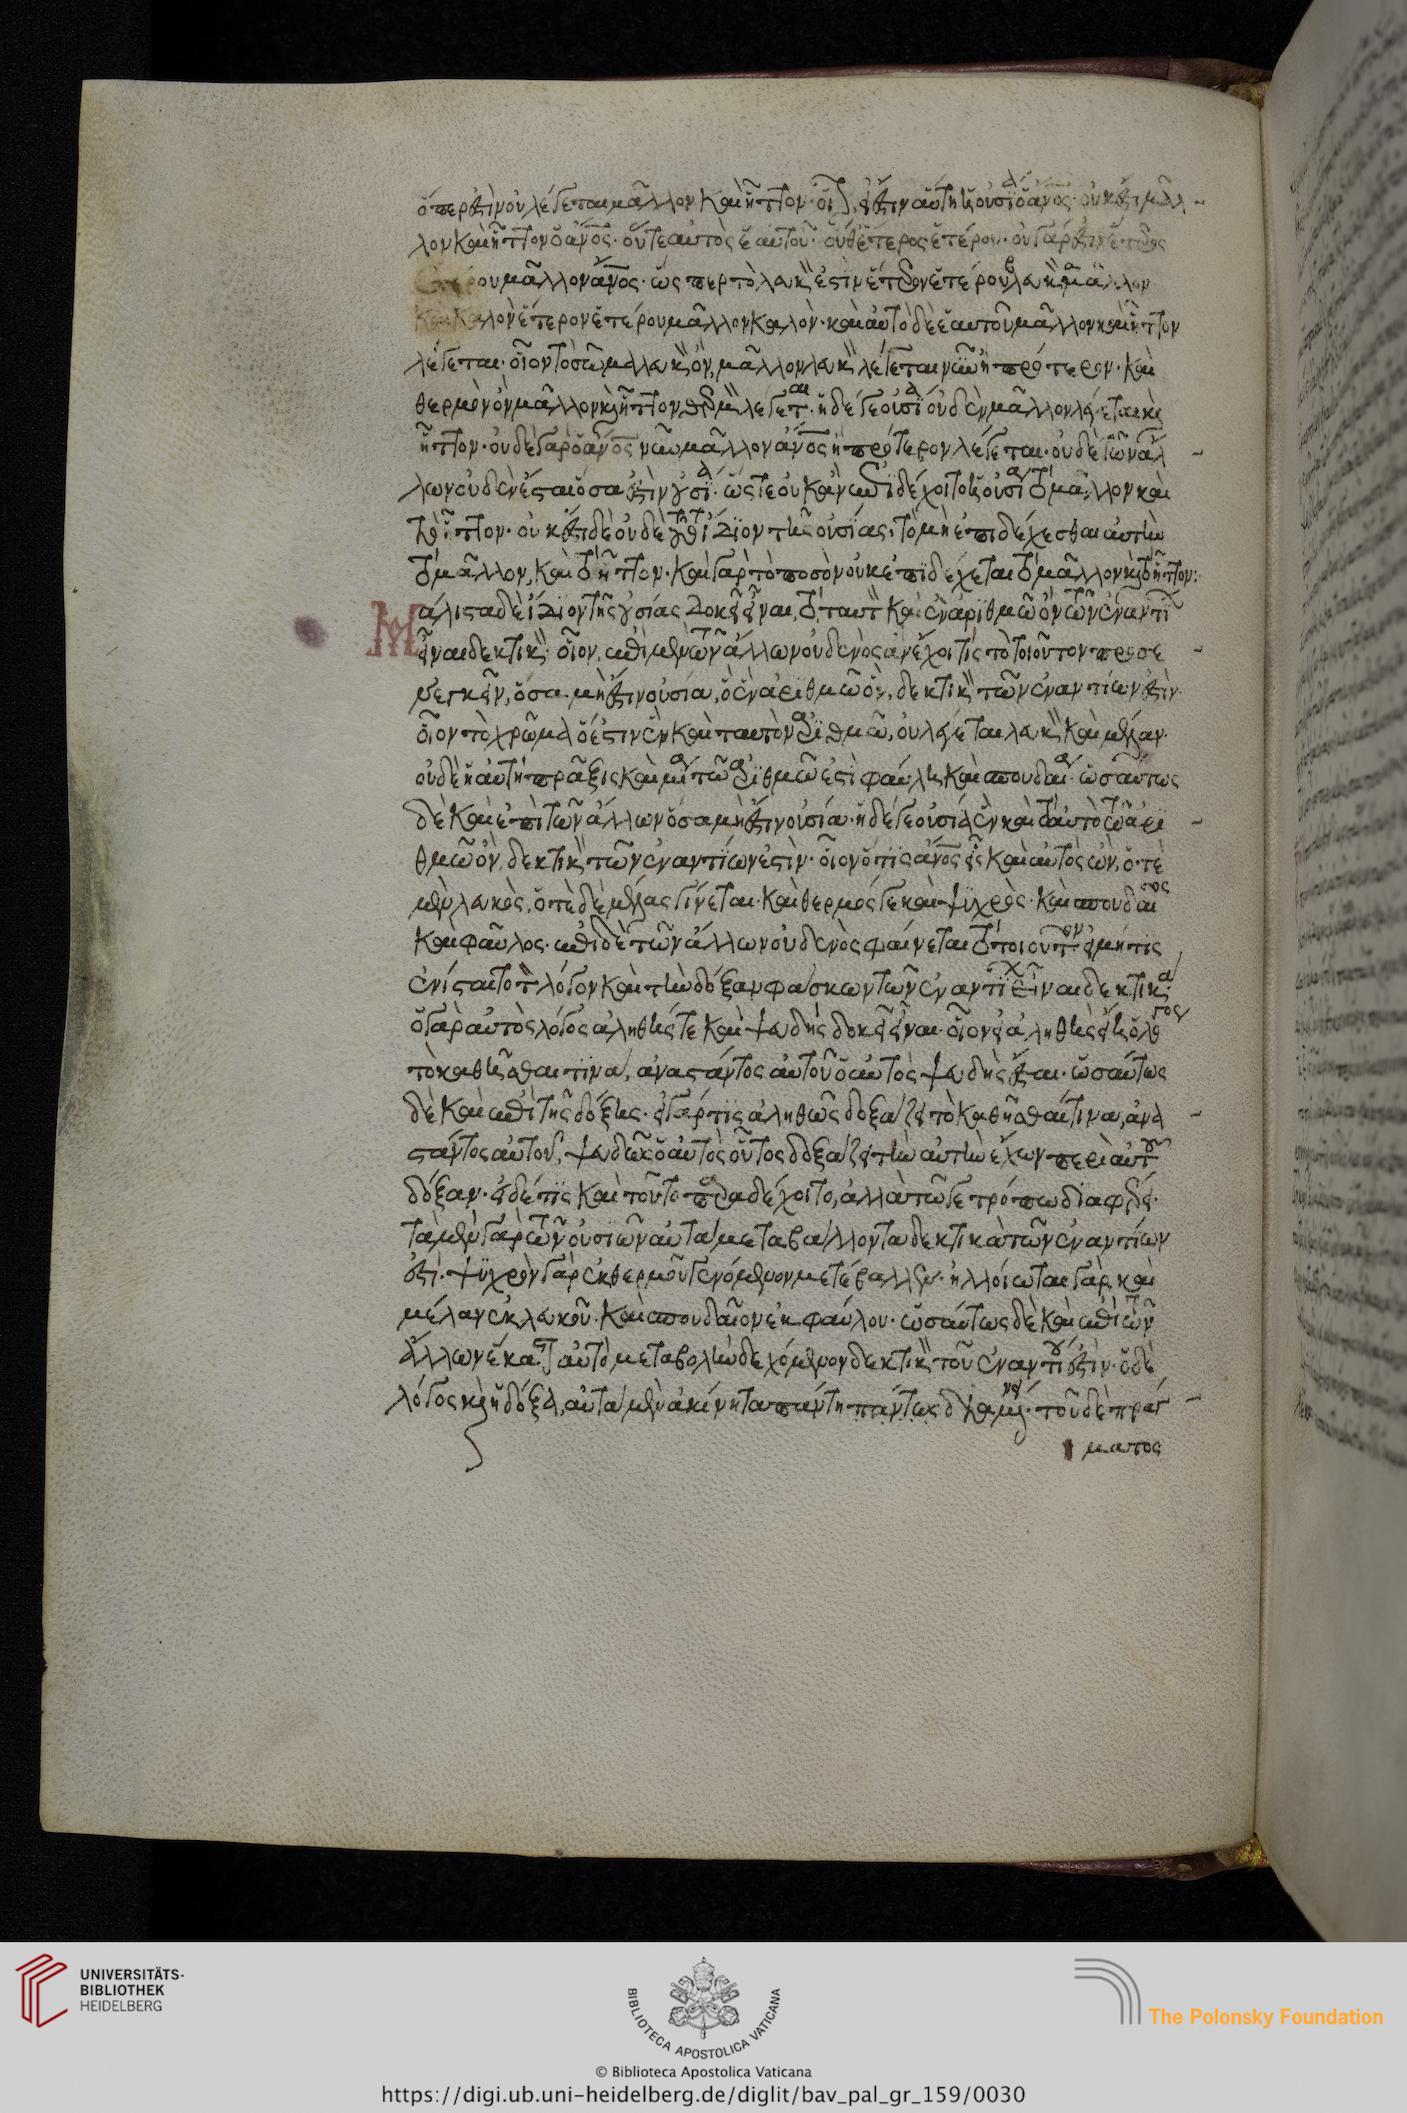 ὅπερ ἐστὶν οὐ λέγεται μᾶλλον καὶ ἧττον· οἷον, εἰ ἔστιν αὕτη ἡ οὐσία ὁ ἄνος· οὐκ ἔστι μᾶλ-
λον καὶ ἧττον ὁ ἄνος· οὔτε αὐτὸς ἑαυτοῦ· οὔθ' ἕτερος ἑτέρου· οὐ γάρ ἐστιν ἕτερος
ἑτέρου μᾶλλον ἄνος· ὥσπερ τὸ λευκὸν ἐστὶν ἕτερον ἑτέρου λευκοῦ μᾶλλον
καὶ καλὸν ἕτερον ἑτέρου μᾶλλον καλὸν· καὶ αὐτὸ δὲ ἑαυτοῦ μᾶλλον καὶ ἧττον
λέγεται· οἷον τὸ σῶμα λευκὸν ὂν, μᾶλλον λευκὸν λέγεται νῦν ἢ πρότερον· καὶ
θερμὸν ὂν μᾶλλον καὶ ἧττον θερμὸν λέγεται· ἡ δέ γε οὐσία οὐδὲν μᾶλλον λέγεται καὶ
ἧττον· οὐδὲ γὰρ ὁ ἄνος νῦν μᾶλλον ἄνος ἢ πρότερον λέγεται· οὐδὲ τῶν ἄλ-
λων οὐδὲν ἔσται ὅσα ἐστὶν οὐσία· ὥστε οὐκ ἂν ἐπιδέχοιτο ἡ οὐσία τὸ μᾶλλον καὶ
τὸ ἧττον· οὐκ ἔστι δὲ οὐδὲ τοῦτο ἴδιον τῆς οὐσίας, τὸ μὴ ἐπιδέχεσθαι αὐτὴν
τὸ μᾶλλον, καὶ τὸ ἧττον· καὶ γὰρ τὸ ποσὸν οὐκ ἐπιδέχεται τὸ μᾶλλον καὶ τὸ ἧττον:
Μάλιστα δὲ ἴδιον τῆς οὐσίας δοκεῖ εἶναι, τὸ ταυτὸν καὶ ἓν ἀριθμῶ ὂν τῶν ἐναντίων
εἶναι δεκτικὸν· οἷον, ἐπὶ μὲν τῶν ἄλλων οὐδενὸς ἂν ἔχοι τίς τὸ τοιοῦτον προσε-
νεγκεῖν, ὅσα μὴ ἔστιν οὐσία, ὃ ἓν ἀριθμῶ ὂν, δεκτικὸν τῶν ἐναντίων ἐστὶν
οἷον τὸ χρῶμα ὅ ἐστιν ἓν καὶ ταυτὸν ἀριθμῶ, οὐ λέγεται λευκὸν καὶ μέλαν·
οὐδὲ ἡ αὐτὴ πρᾶξις καὶ μία τῶ ἀριθμῶ ἐστὶ φαύλη καὶ σπουδαία· ὡσαύτως
δὲ καὶ ἐπὶ τῶν ἄλλων ὅσα μὴ ἔστιν οὐσία· ἡ δέ γε οὐσία ἓν καὶ ταὐτὸ τῶ ἀρι-
θμῶ ὂν, δεκτικὸν τῶν ἐναντίων ἐστὶν· οἷον ὁ τὶς ἄνος εἷς καὶ αὐτὸς ὢν, ὁτὲ
μὲν λευκὸς, ὁτὲ δὲ μέλας γίνεται· καὶ θερμός γε καὶ ψυχρὸς· καὶ σπουδαῖος
καὶ φαῦλος· ἐπὶ δὲ τῶν ἄλλων οὐδενὸς φαίνεται τὸ τοιοῦτον εἰ μή τις
ἐνίσταιτο τὸν λόγον καὶ τὴν δόξαν φάσκων τῶν ἐναντίων εἶναι δεκτικά·
ὁ γὰρ αὐτὸς λόγος ἀληθής τε καὶ ψευδὴς δοκεῖ εἶναι· οἷον εἰ ἀληθὴς εἴη ὁ λόγος
τὸ καθῆσθαι τινα, ἀναστάντος αὐτοῦ ὁ αὐτὸς ψευδὴς ἔσται· ὡσαύτως
δὲ καὶ ἐπὶ τῆς δόξης· εἰ γάρ τις ἀληθῶς δοξάζει τὸ καθῆσθαί τινα, ἀνα-
στάντος αὐτοῦ, ψευδῶς ὁ αὐτὸς οὗτος δοξάζει τὴν αὐτὴν ἔχων περὶ αὐτοῦ
δόξαν· εἰ δέ τις καὶ τοῦτο παραδέχοιτο, ἀλλὰ τῶ γε τρόπω διαφέρει·
τὰ μὲν γὰρ τῶν οὐσιῶν αὐτὰ μεταβάλλοντα δεκτικὰ τῶν ἐναντίων
ἐστί· ψυχρὸν γὰρ ἐκ θερμοῦ γενόμενον μετέβαλλεν· ἠλλοίωται γὰρ καὶ
μέλαν ἐκ λευκοῦ· καὶ σπουδαῖον ἐκ φαύλου· ὡσαύτως δὲ καὶ ἐπὶ τῶν
ἄλλων ἕκαστον αὐτὸ μεταβολὴν δεχόμενον δεκτικὸν τοῦ ἐναντίου ἐστὶν· ὁ δὲ
λόγος καὶ ἡ δόξα, αὐτὰ μὲν ἀκίνητα πάντη πάντως διαμένει· τοῦ δὲ πράγ-
ματος
UNIVERSITÄTS-
BIBLIOTHEK
HEIDELBERG
BIBLIOTECA APOSTOLICA VATICANA
The Polonsky Foundation
© Biblioteca Apostolica Vaticana
https://digi.ub.uni-heidelberg.de/diglit/bav_pal_gr_159/0030